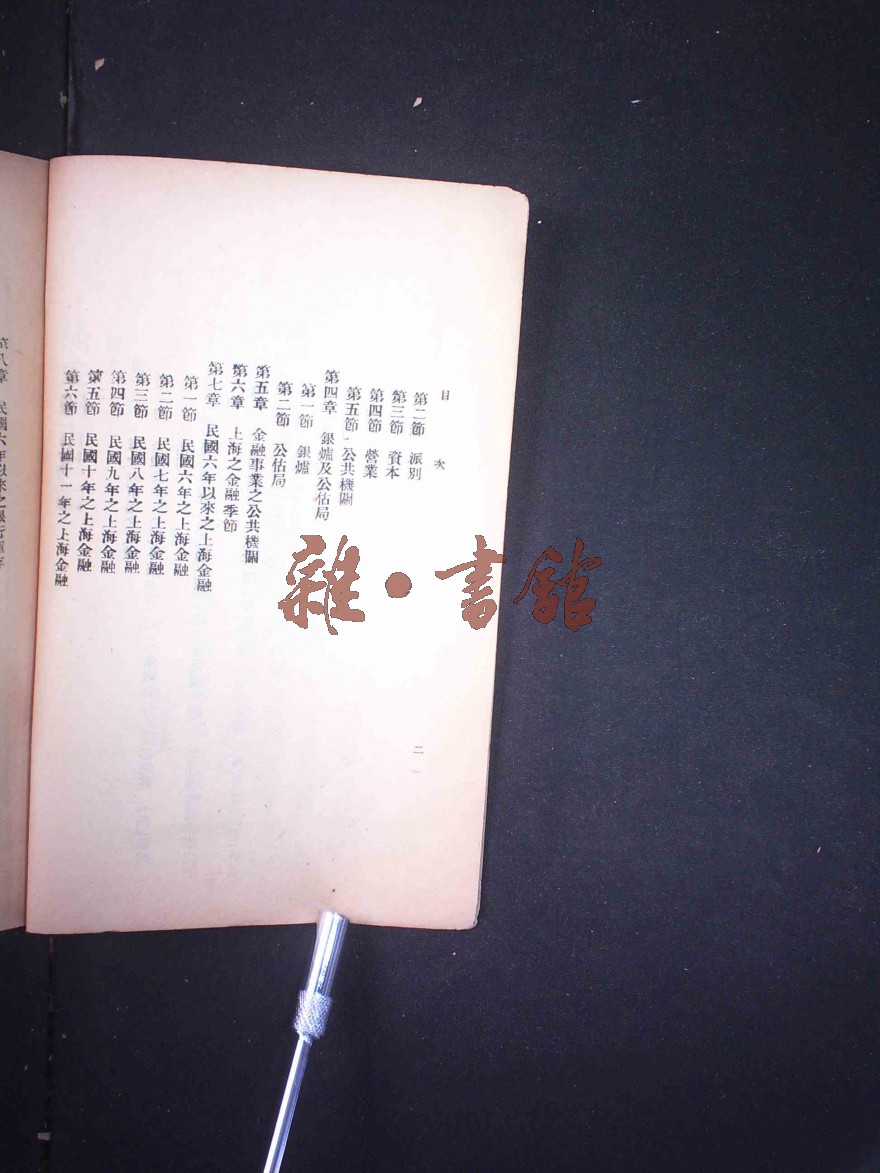 目次
第二節 派別
第三節 資本
第四節 營業
第五節 公共機關
第四章 銀爐及公估局
第一節 銀爐
第二節 公估局
第五章 金融事業之公共機關
第六章 上海之金融季節
第七章 民國六年以來之上海金融
第一節 民國六年之上海金融
第二節 民國七年之上海金融
第三節 民國八年之上海金融
第四節 民國九年之上海金融
第五節 民國十年之上海金融
第六節 民國十一年之上海金融
二
第八章 民國六年以來之銀行
雜·書館